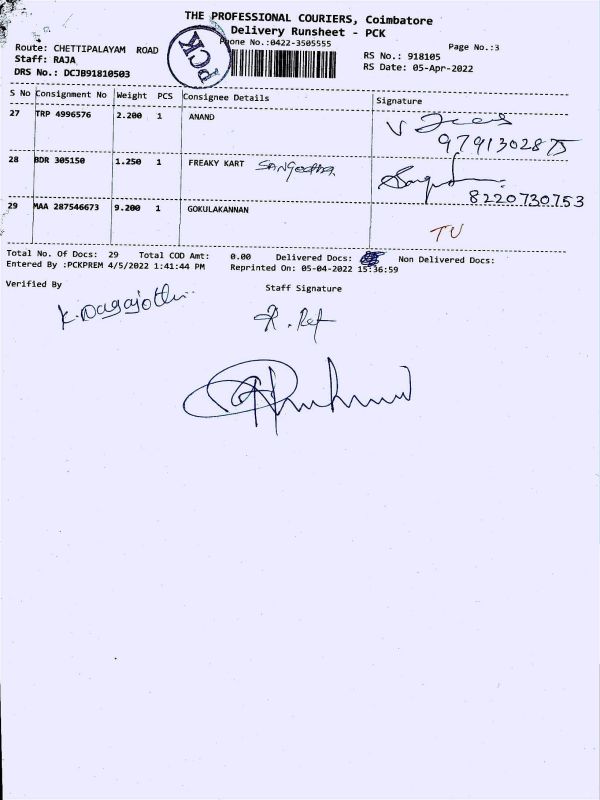 THE PROFESSIONAL COURIERS, Coimbatore
Delivery Runsheet - PCK
Phone No.:0422-3505555
Page No.:3
Route: CHETTIPALAYAM ROAD
Staff: RAJA
DRS No.: DCJB91810503
PCK
RS No.: 918105
RS Date: 05-Apr-2022
S No Consignment No Weight PCS Consignee Details Signature
27 TRP 4996576 2.200 1 ANAND
9791302875
28 BDR 305150 1.250 1 FREAKY KART SANGEETHA
8220730753
29 MAA 287546673 9.200 1 GOKULAKANNAN
TU
Total No. Of Docs: 29 Total COD Amt: 0.00 Delivered Docs: Non Delivered Docs:
Entered By :PCKPREM 4/5/2022 1:41:44 PM Reprinted On: 05-04-2022 15:36:59
Verified By Staff Signature